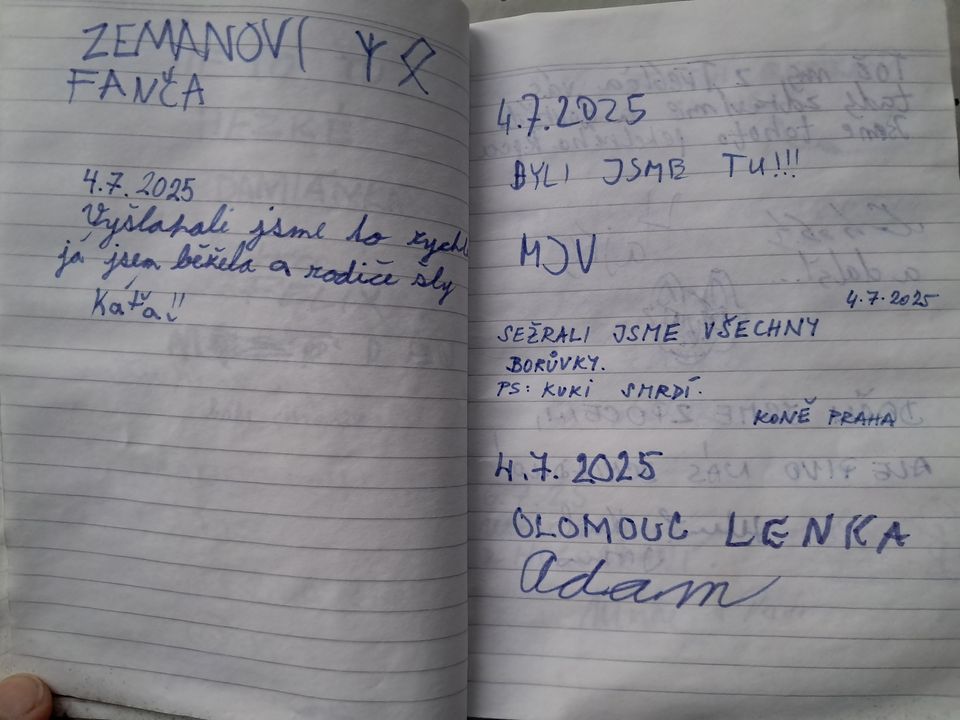 ZEMANOVI ᛉ ᛟ
FANČA
4.7.2025
Vyšlapali jsme to rychl
já jsem běžela a rodiče šly
Káťa!!
4.7.2025
BYLI JSME TU!!!
MJV
4.7.2025
SEŽRALI JSME VŠECHNY
BORŮVKY.
PS: KUKI SMRDÍ.
KONĚ PRAHA
4.7.2025
OLOMOUC LENKA
Adam